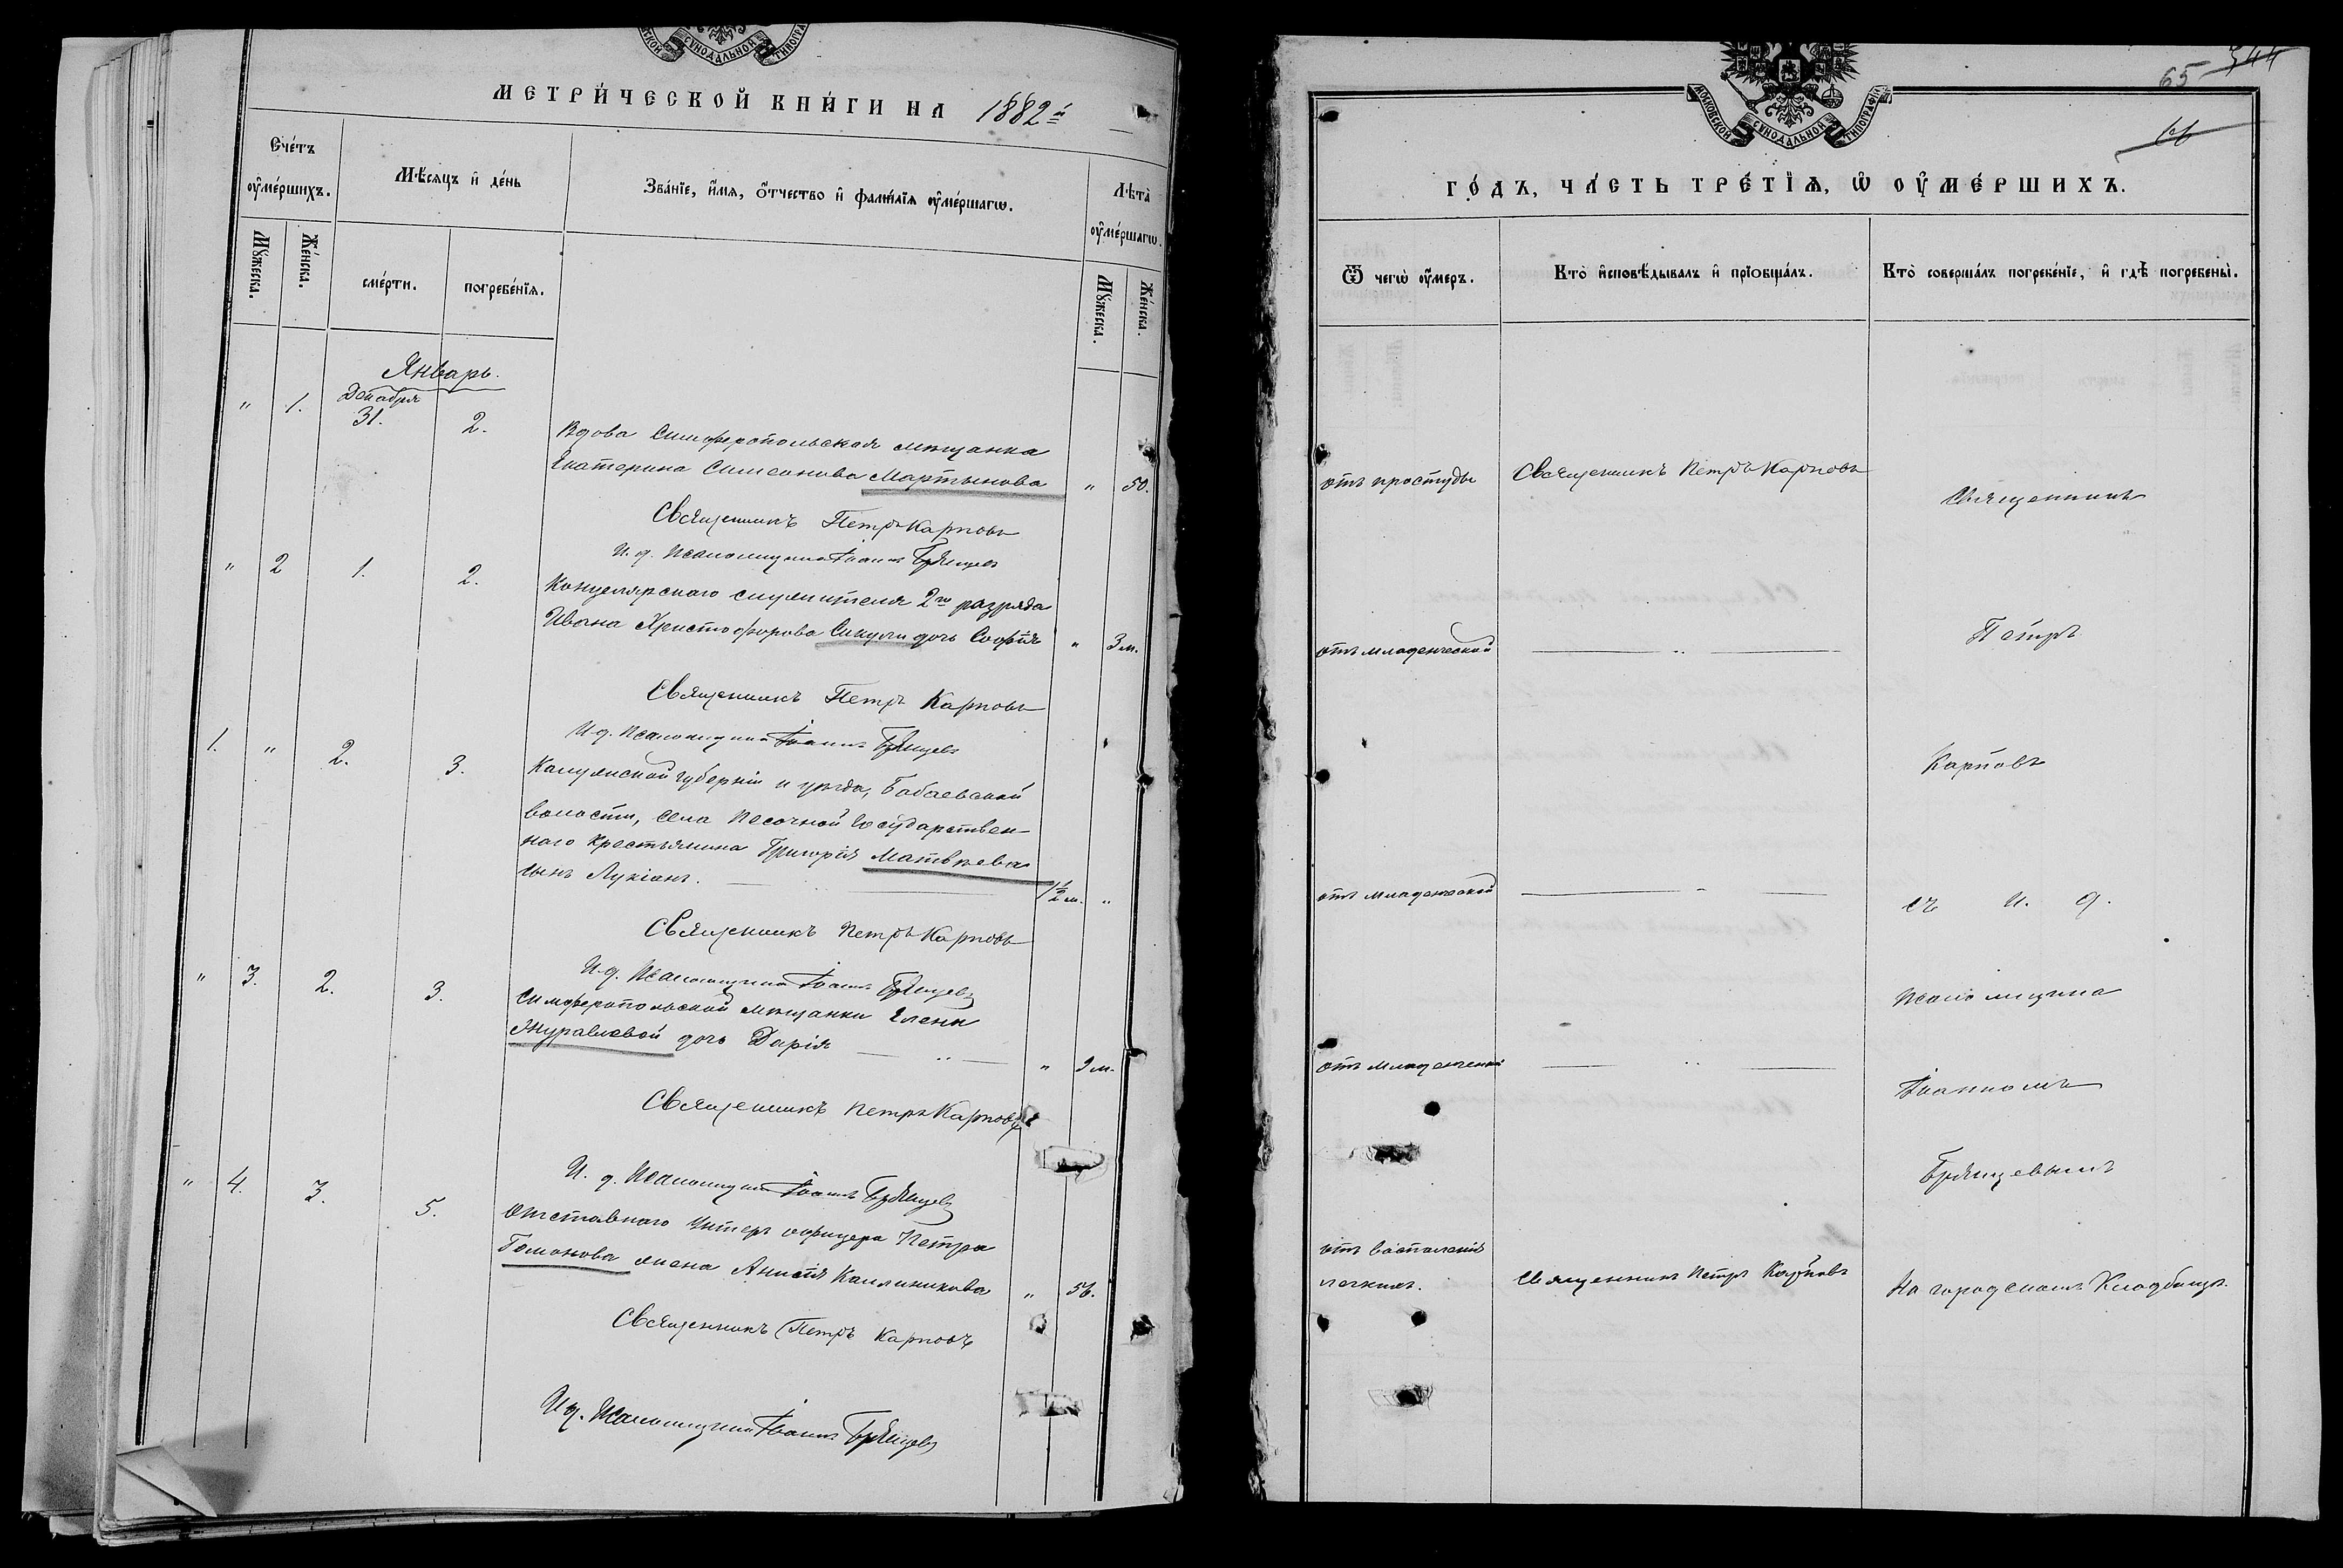 СѴНОДАЛЬНОЙ
МЕТРИ́ЧЕСКОЙ КНИ́ГИ НА 1882й
Сче́тъ ᲂу҆ме́ршихъ.
Мѣ́сяцъ и҆ де́нь
Зва́нїе, и҆́мя, ѻ҆́тчество и҆ фами́лїя ᲂу҆ме́ршагѡ.
Лѣ́та ᲂу҆ме́ршагѡ.
Мꙋ́жеска.
Же́нска.
сме́рти.
погребе́нїя.
Мꙋ́жеска.
Же́нска.
Январь.
" 1. Декабря 31. 2. Вдова Симферопольская мѣщанка
Екатерина Симеонова Мартынова " 50.
Священникъ Петръ Карповъ
И. д. Псаломщика Іоаннъ Брянцевъ
" 2 1. 2. Канцелярскаго служителя 2го разряда
Ивана Христофорова дочь Софія " 3 м.
Священникъ Петръ Карповъ
И. д. Псаломщика Іоаннъ Брянцевъ
1. " 2. 3. Калужской губерніи и уѣзда, Бабаевской
волости, села Песочной Государствен-
наго крестьянина Григорія Матвѣева
сынъ Лукіанъ. 1½ м. "
Священникъ Петръ Карповъ
И. д. Псаломщика Іоаннъ Брянцевъ
" 3. 2. 3. Симферопольской мѣщанки Елены
Журавлевой дочь Дарія " м.
Священникъ Петръ Карповъ
И. д. Псаломщика Іоаннъ Брянцевъ
" 4. 3. 5. Отставнаго Унтеръ офицера Петра
Гомонова жена Анисія Каллиникова " 56.
Священникъ Петръ Карповъ
И. д. Псаломщика Іоаннъ Брянцевъ
65 344
МОСКОВСКОЙ СѴНОДАЛЬНОЙ ТИПОГРАФІИ
ГО́ДЪ, ЧА́СТЬ ТРЕ́ТЇѦ, Ѡ҆ ОУ҆МЕ́РШИХЪ.
Ѿ чегѡ̀ ᲂу҆́меръ.
Кто̀ и҆сповѣ́дывалъ и҆ прїѡбща́лъ.
Кто̀ соверша́лъ погребе́нїе, и҆ гдѣ̀ погребены̀.
отъ простуды Священникъ Петръ Карповъ
Священникъ
отъ младенческой
Петръ
Карповъ
отъ младенческой
съ и. д.
Псаломщика
отъ младенческой
Іоанномъ
Брянцевымъ
отъ воспаленія
легкихъ. Священникъ Петръ Карповъ На городскомъ Кладбищѣ.